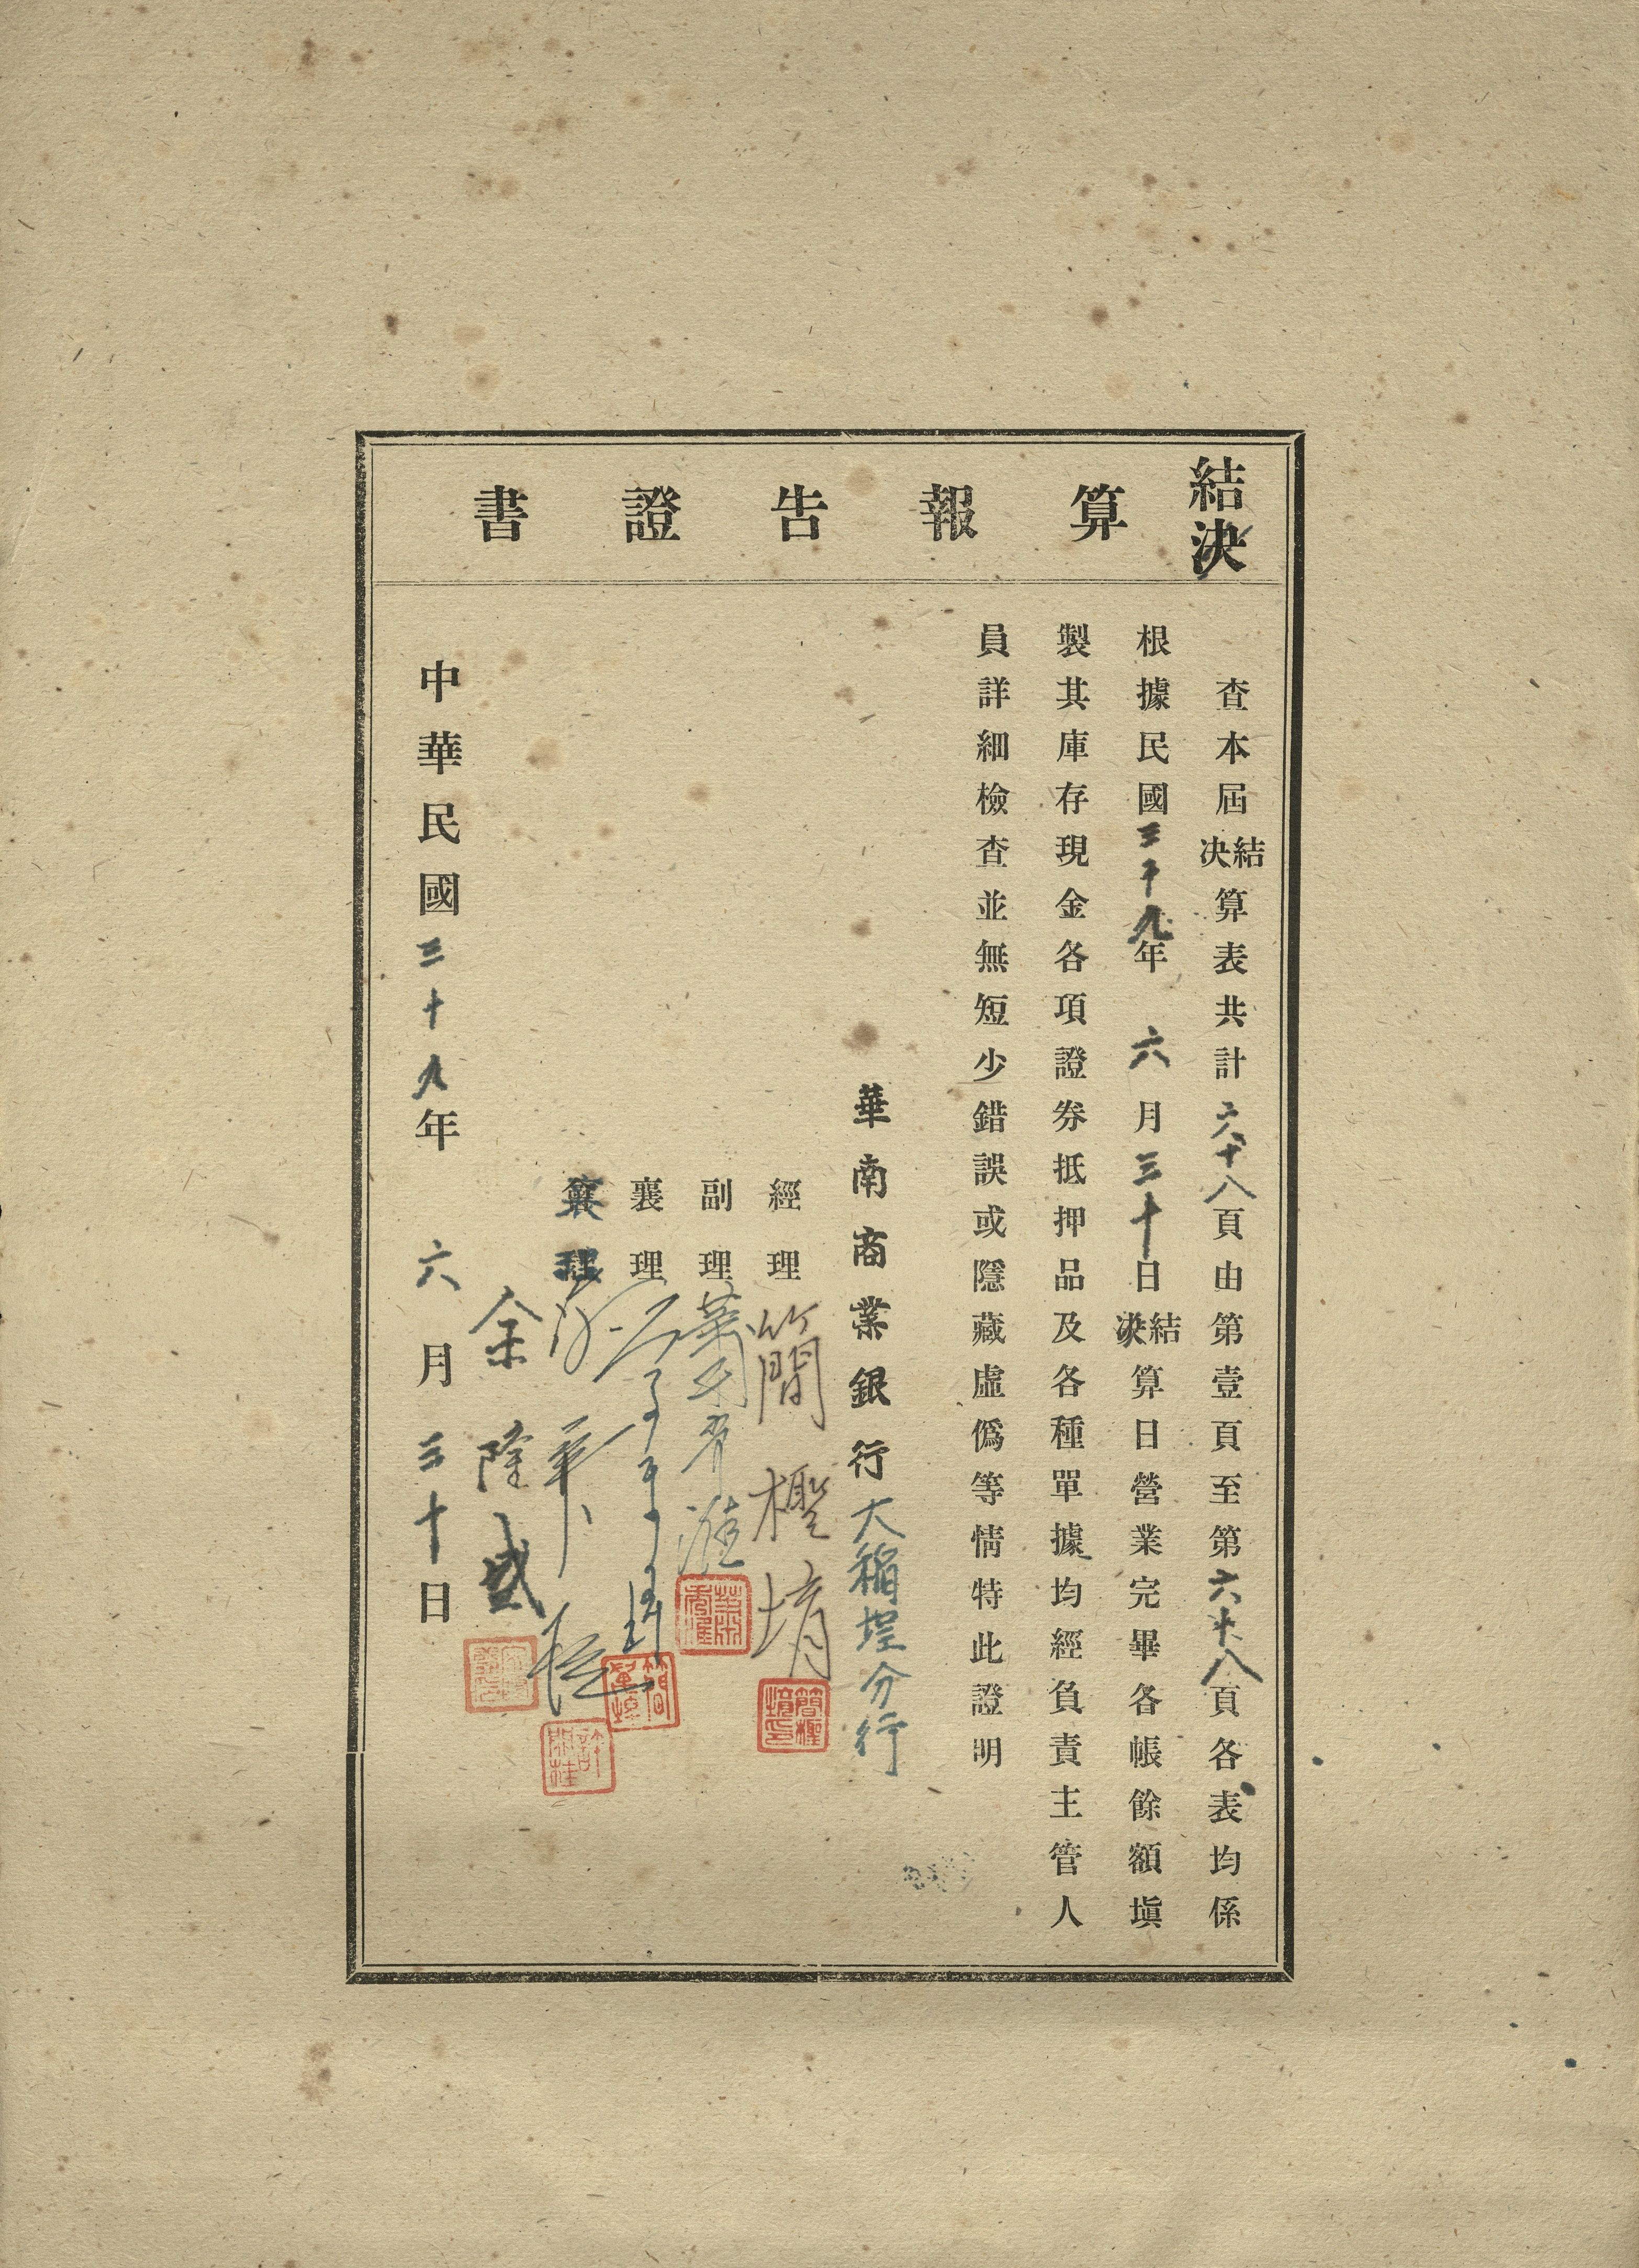 結決算報告證書
查本屆結決算表共計六十八頁由第壹頁至第六十八頁各表均係
根據民國三十九年六月三十日結決算日營業完畢各帳餘額塡
製其庫存現金各項證券抵押品及各種單據均經負責主管人
員詳細檢查並無短少錯誤或隱藏虛僞等情特此證明
華南商業銀行大稲埕分行
經理 簡檉堉
副理
襄理
襄理
余隆盛
中華民國三十九年六月三十日